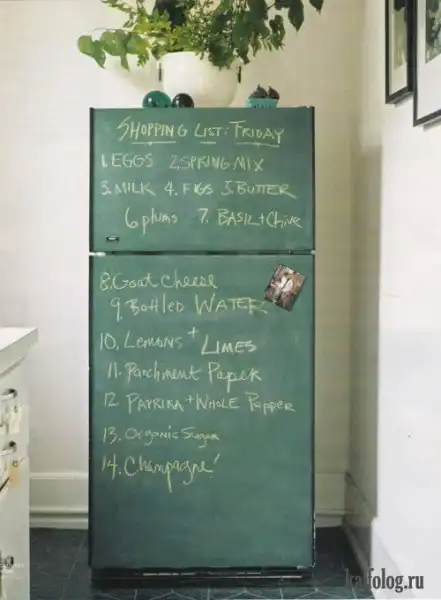 SHOPPING LIST: FRIDAY
1. EGGS 2. SPRING MIX
3. MILK 4. FIGS 5. BUTTER
6 plums 7. BASIL + Chive
8. Goat cheese
9. Bottled WATER
10. LEMONS + LIMES
11. Parchment Paper
12 PAPRIKA + WHOLE Pepper
13. Organic Sugar
14. Champagne!
kafolog.ru